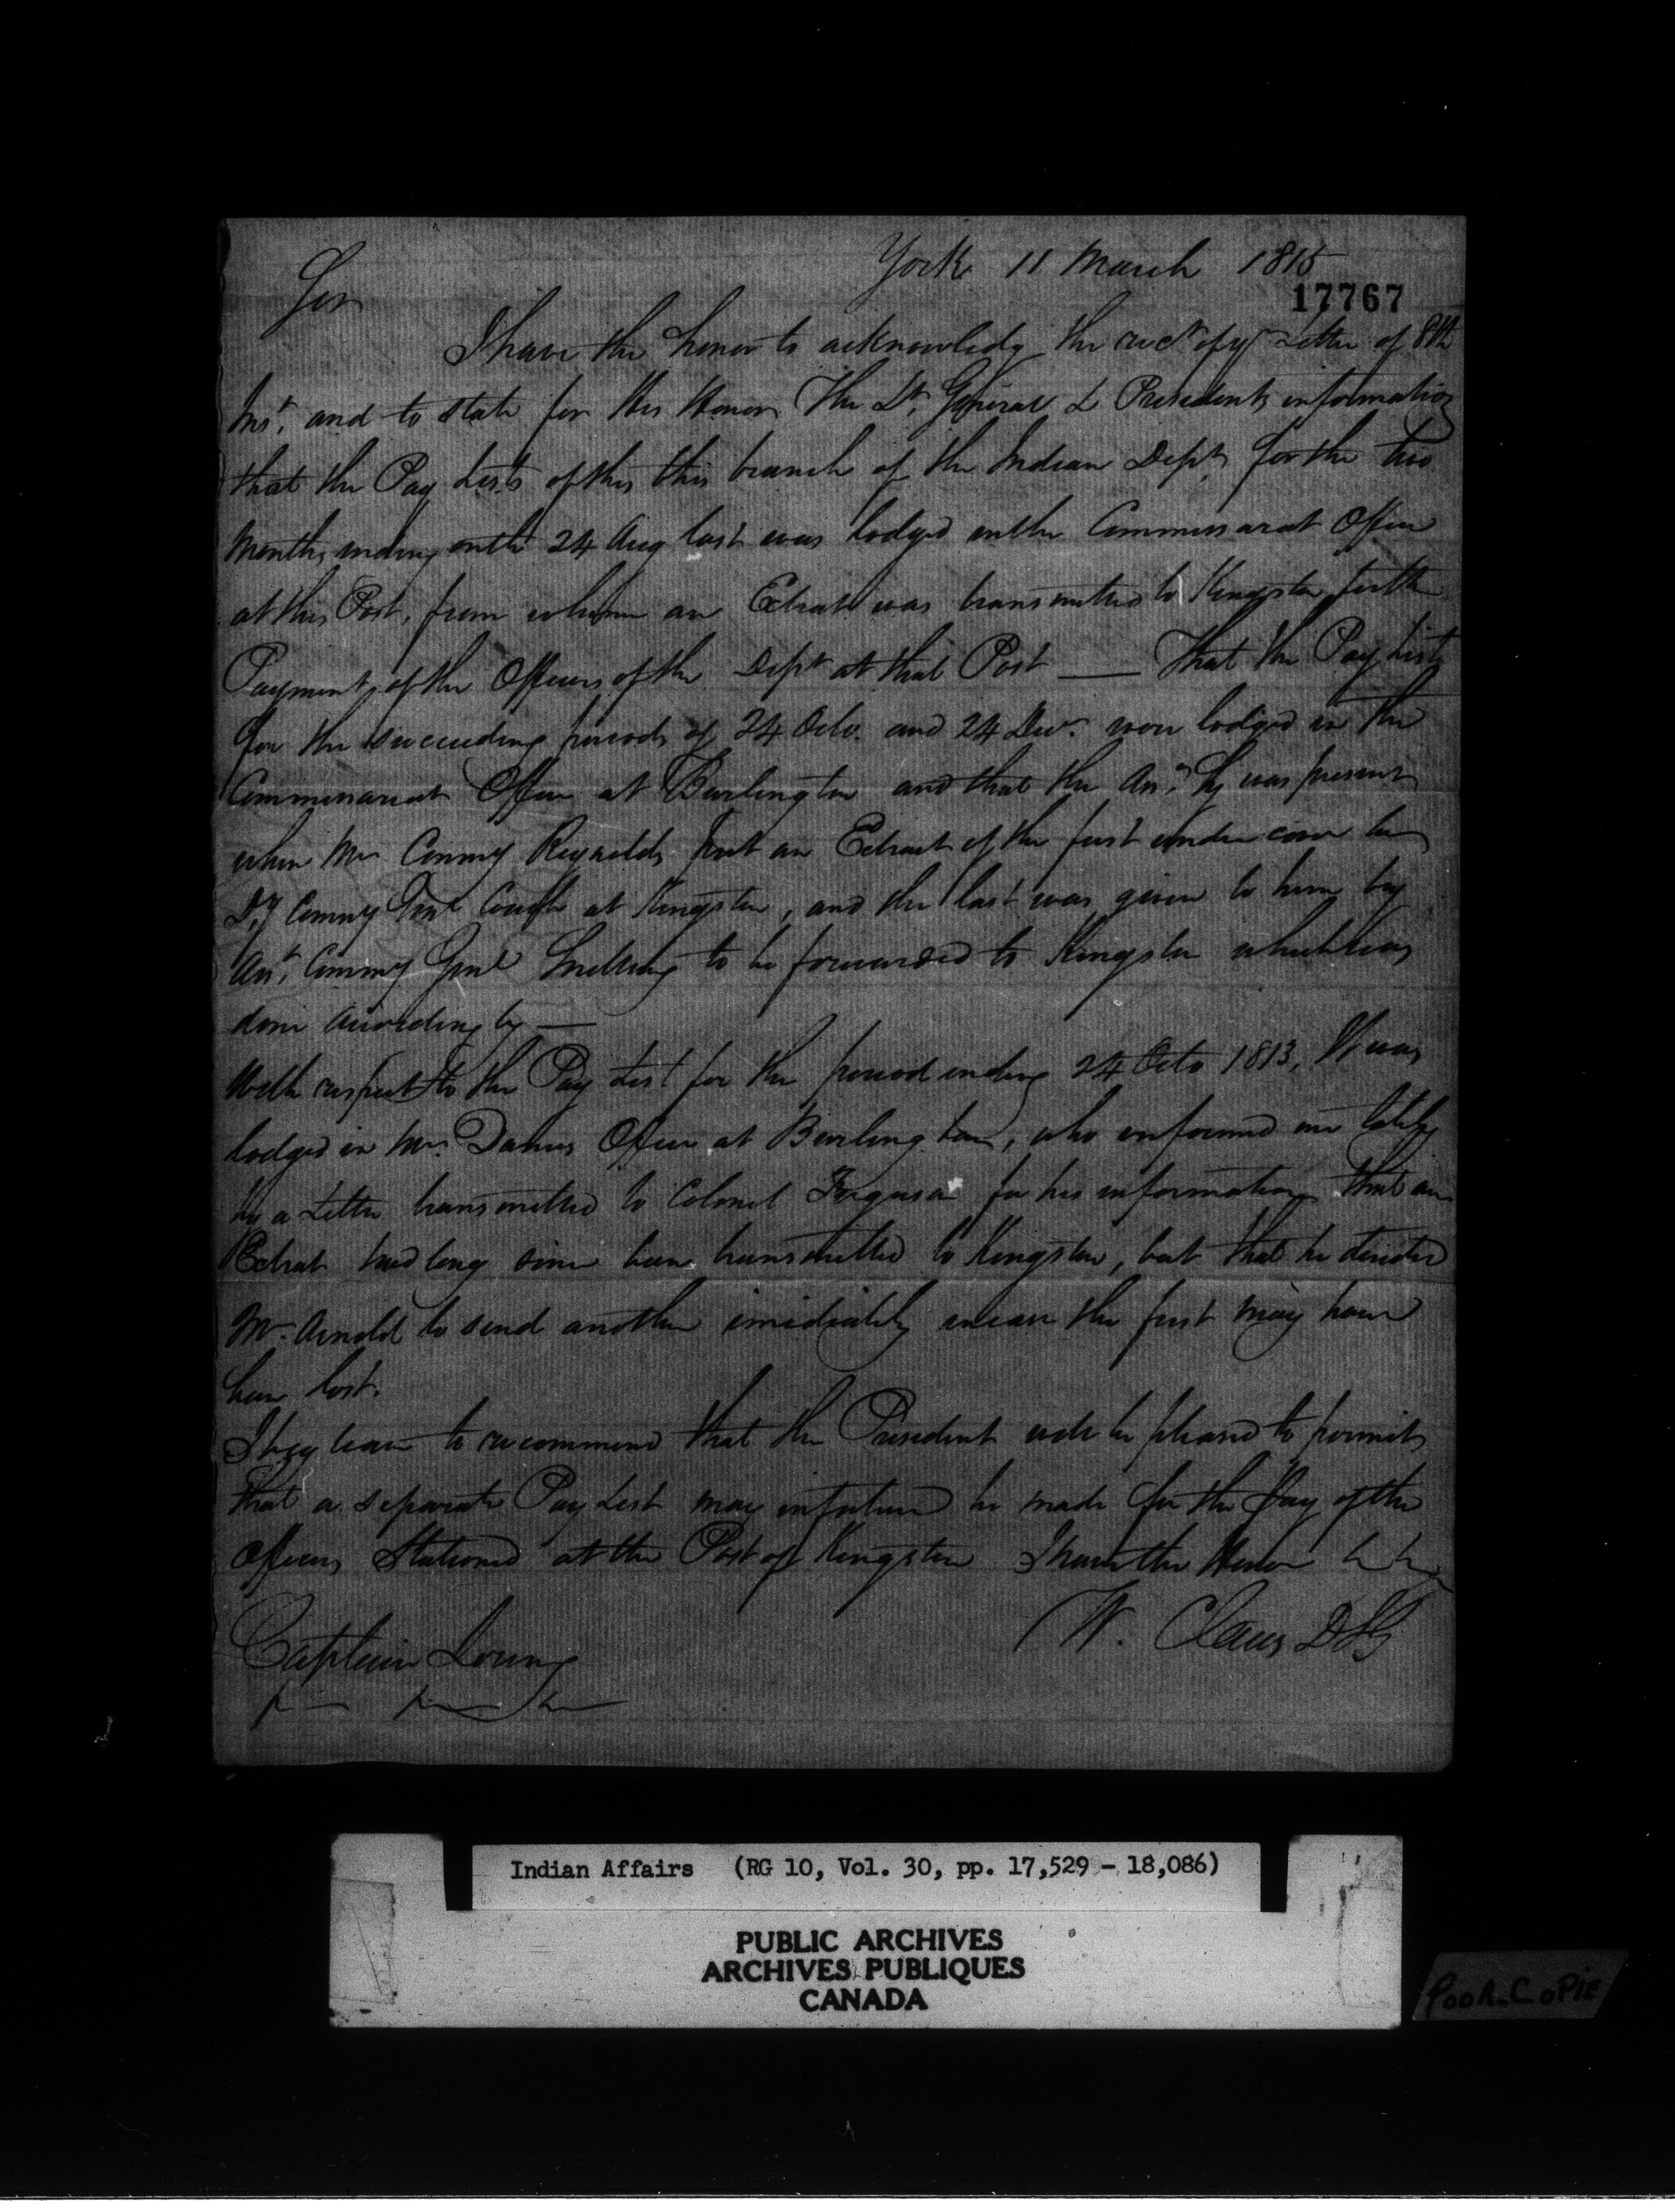 York 11 March 1815
17767
Sir
I have the honor to acknowledg the rect of yr Letter of 8th
Inst. and to state for His Honor The Lt. General & Presidents information
that the Pay Lists of this this branch of the Indian Dept for the two
Months ending onth 24 Aug last was lodged inthe Commissariat Office
at this Post, from whom an Extrat was transmitted to Kingston forth
Payment of the Officers of the Dept at that Post — That the Pay Lists
for the succeeding periods of 24 Octo. and 24 Decr. were lodged in the
Commissariat Office at Burlington and that the was present
when Mr Commy Reynolds put an Extract of the first under cover to
Dy Commy Genl Couche at Kingston, and the last was given to him by
Asst. Commy Genl to be forwarded to Kingston which was
done Accordingly —
With respect to the Pay List for the period ending 24 Octo 1813, It was
lodged in Mr. Office at Burlington, who informed me lately
by a Letter transmitted to Colonel Ferguson for his information that an
Extrat had long since been transmitted to Kingston, but that he directed
Mr. Arnold to send another imidiately incase the first may have
been lost.
I beg leave to recommend that the President will be pleased to permit
that a separate Pay List may infuture be made for the Pay of the
Officers Stationed at the Post of Kingston I have the Honor to be
W. Claus DSG
Captain Loring
Indian Affairs (RG 10, Vol. 30, pp. 17,529 - 18,086)
PUBLIC ARCHIVES
ARCHIVES PUBLIQUES
CANADA
POOR COPIE